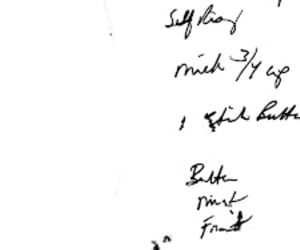 Self Rising
milk 3/4 cup
1 stick Butte
Butter
milk
Fruit